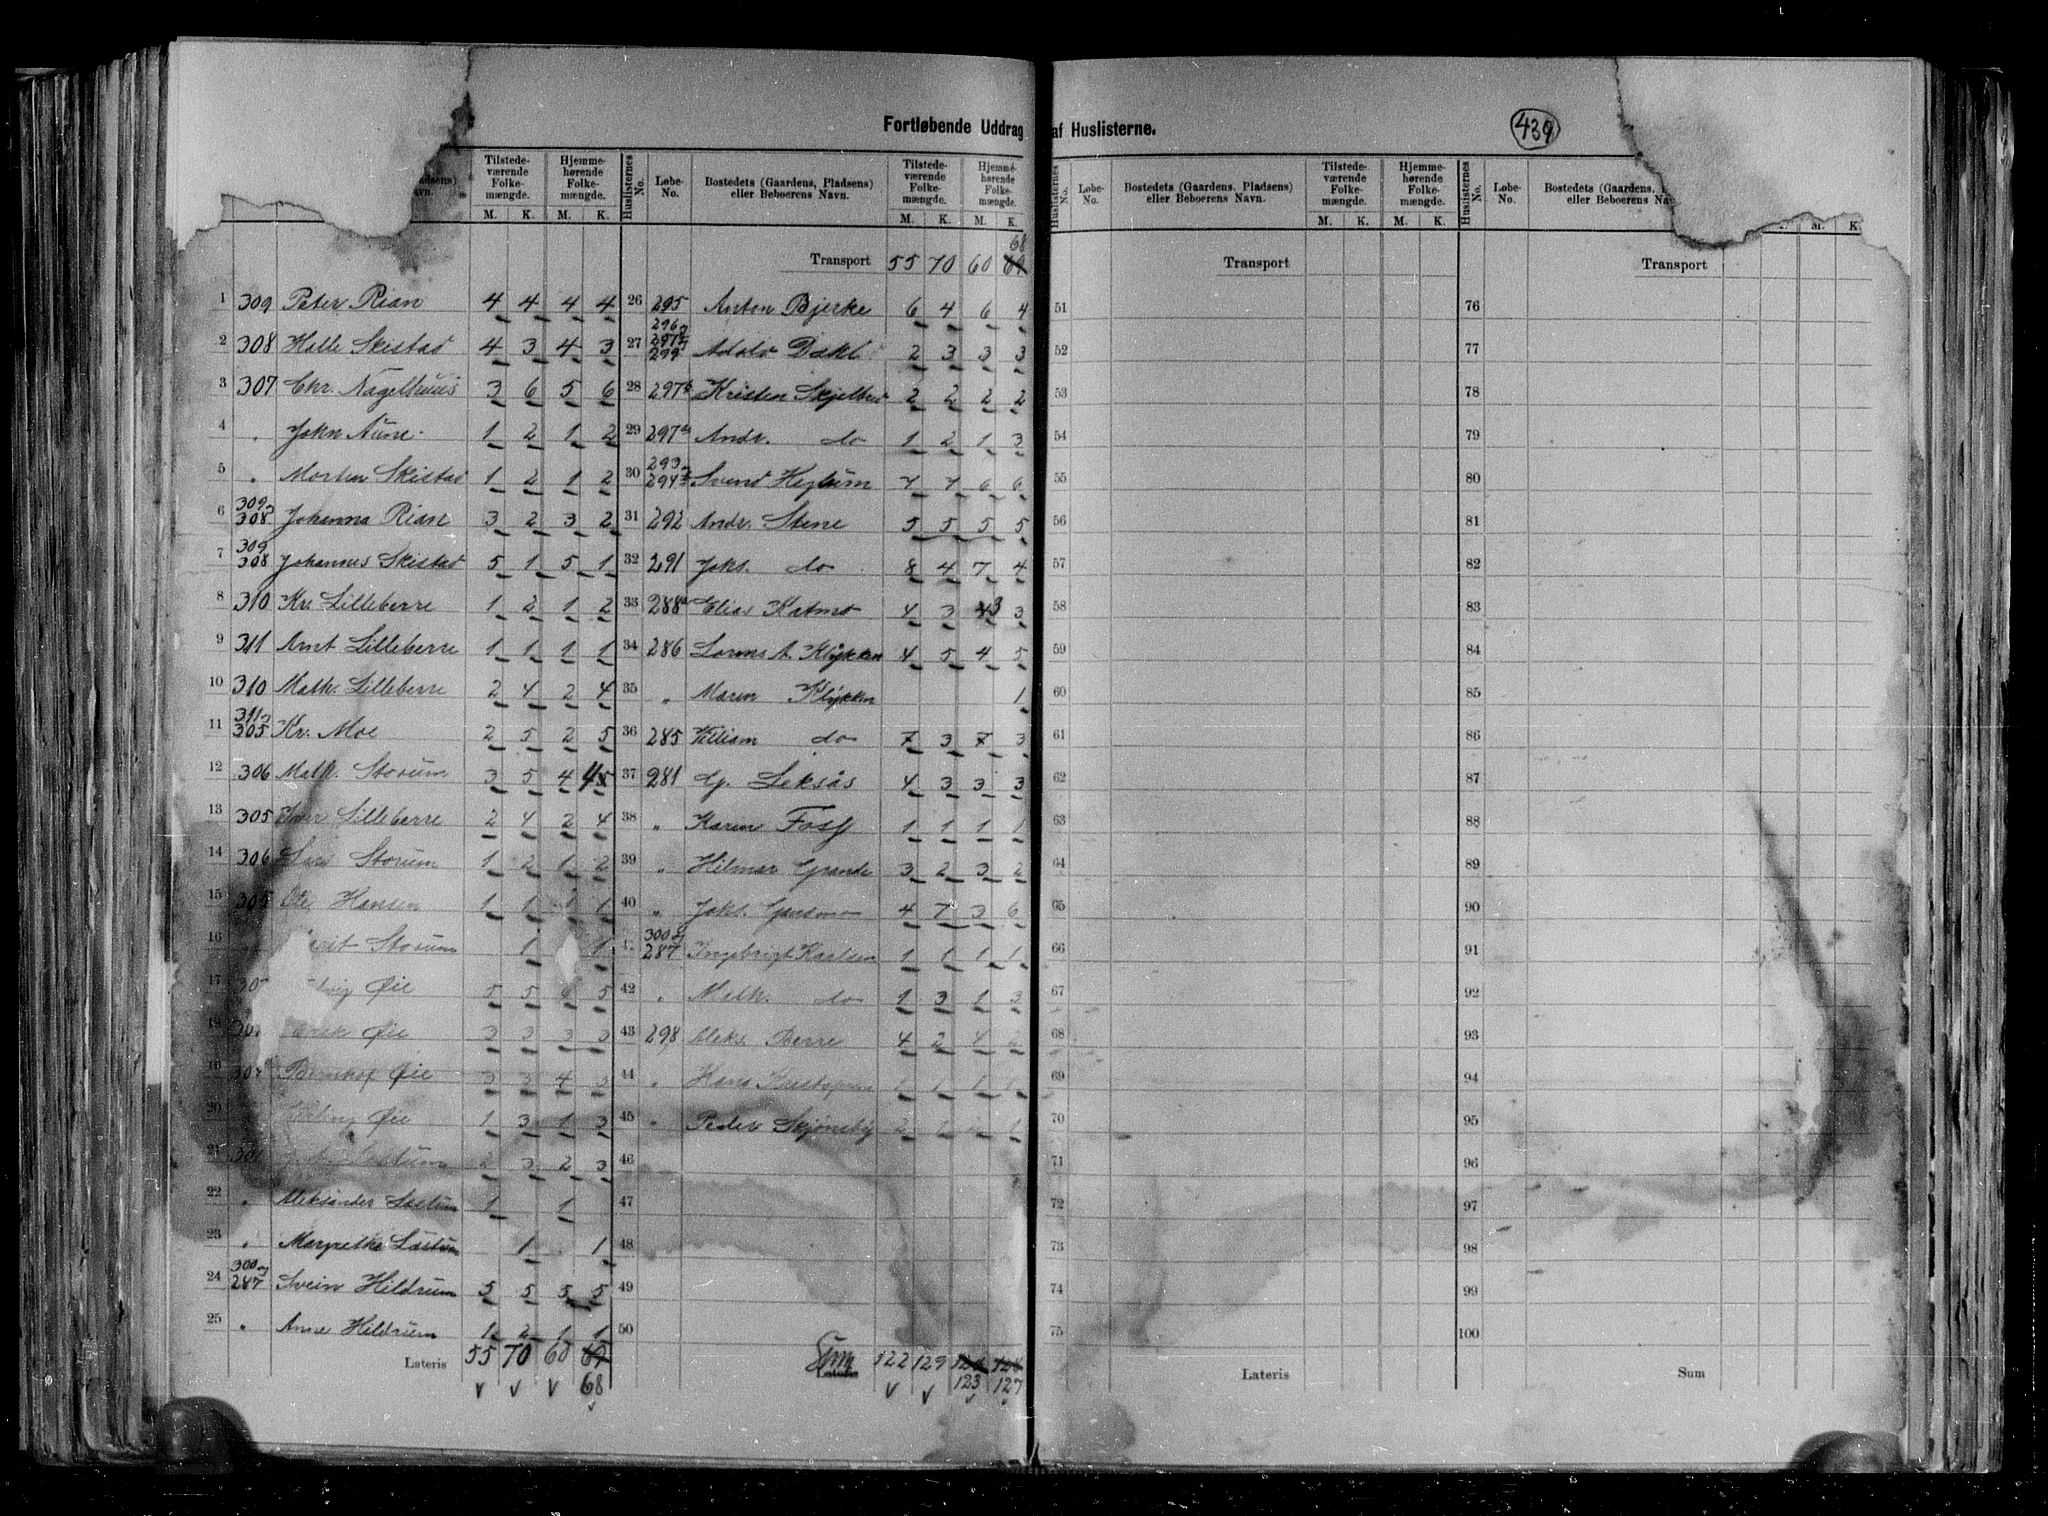 Fortløbende Uddrag af Huslisterne.
439
Tilstedeværende Folkemængde. Hjemmehørende Folkemængde. Huslisternes No. Løbe-No. Bostedets (Gaardens, Pladsens) eller Beboerens Navn. Tilstedeværende Folkemængde. Hjemmehørende Folkemængde.
M. K. M. K. M. K. M. K.
1 309 Peter Rian 4 4 4 4
2 308 Halle Skistad 4 3 4 3
3 307 Chr. Nagelhuus 3 6 5 6
4 " John Aune 1 2 1 2
5 " Morten Skistad 1 2 1 2
6 309 og 308 Johanna Rian 3 2 3 2
7 309 308 Johannes Skistad 5 1 5 1
8 310 Kr. Lilleberre 1 2 1 2
9 311 Arnt Lilleberre 1 1 1 1
10 310 Math. Lilleberre 2 4 2 4
11 311 og 305 Kr. Moe 2 5 2 5
12 306 Math. Storum 3 5 4 4
13 305 Iver Lilleberre 2 4 2 4
14 306 Storum 1 2 1 2
15 305 Ole Hansen 1 1 1 1
16 Storum 1 1
17 Øie 5 5 5
18 Øie 3 3 3 3
19 Øie 3 3 4 3
20 Øie 1 3 1 3
21 2 3 2 3
22 " Aleksander Løstum 1 1
23 " Margrethe Løstum 1 1
24 300 og 287 Svein Hildrum 5 5 5 5
25 " Anne Hildrum 1 2 1 1
Lateris 55 70 60 69
68
Transport 55 70 60 69 68
26 295 Anton Bjerke 6 4 6 4
27 296 og 299 Adolv Dahl 2 3 3 3
28 297b Kristen 2 2 2 2
29 297a Andr. do 1 2 1 3
30 293 og 294 Svend Heglum 7 7 6 6
31 292 Andr. Stene 5 5 5 5
32 291 Joh. do 8 4 7 4
33 288a Elias Katmo 4 3 3 3
34 286 A. Klykken 4 5 4 5
35 " Maren Klykken 1
36 285 do 7 3 7 3
37 281 Leksås 4 3 3 3
38 " Karen 1 1 1 1
39 " Hilmar Grande 3 2 3 2
40 " Joh. 4 7 3 6
300 og 287 Ingebrigt Karlsen 1 1 1 1
42 " Math. do 1 3 1 3
43 298 Aleks. Berre 4 2 4 2
44 " Hans 1 1 1
45 " Peder Skjønsby 2 1 1
46
47
48
49
50
Sum Lateris 122 129 123 127
Huslisternes No. Løbe-No. Bostedets (Gaardens, Pladsens) eller Beboerens Navn. Tilstedeværende Folkemængde. Hjemmehørende Folkemængde. Huslisternes No. Løbe-No. Bostedets (Gaardens,
M. K. M. K. M. K.
Transport Transport
51 76
52 77
53 78
54 79
55 80
56 81
57 82
58 83
59 84
60 85
61 86
62 87
63 88
64 89
65 90
66 91
67 92
68 93
69 94
70 95
71 96
72 97
73 98
74 99
75 100
Lateris Sum